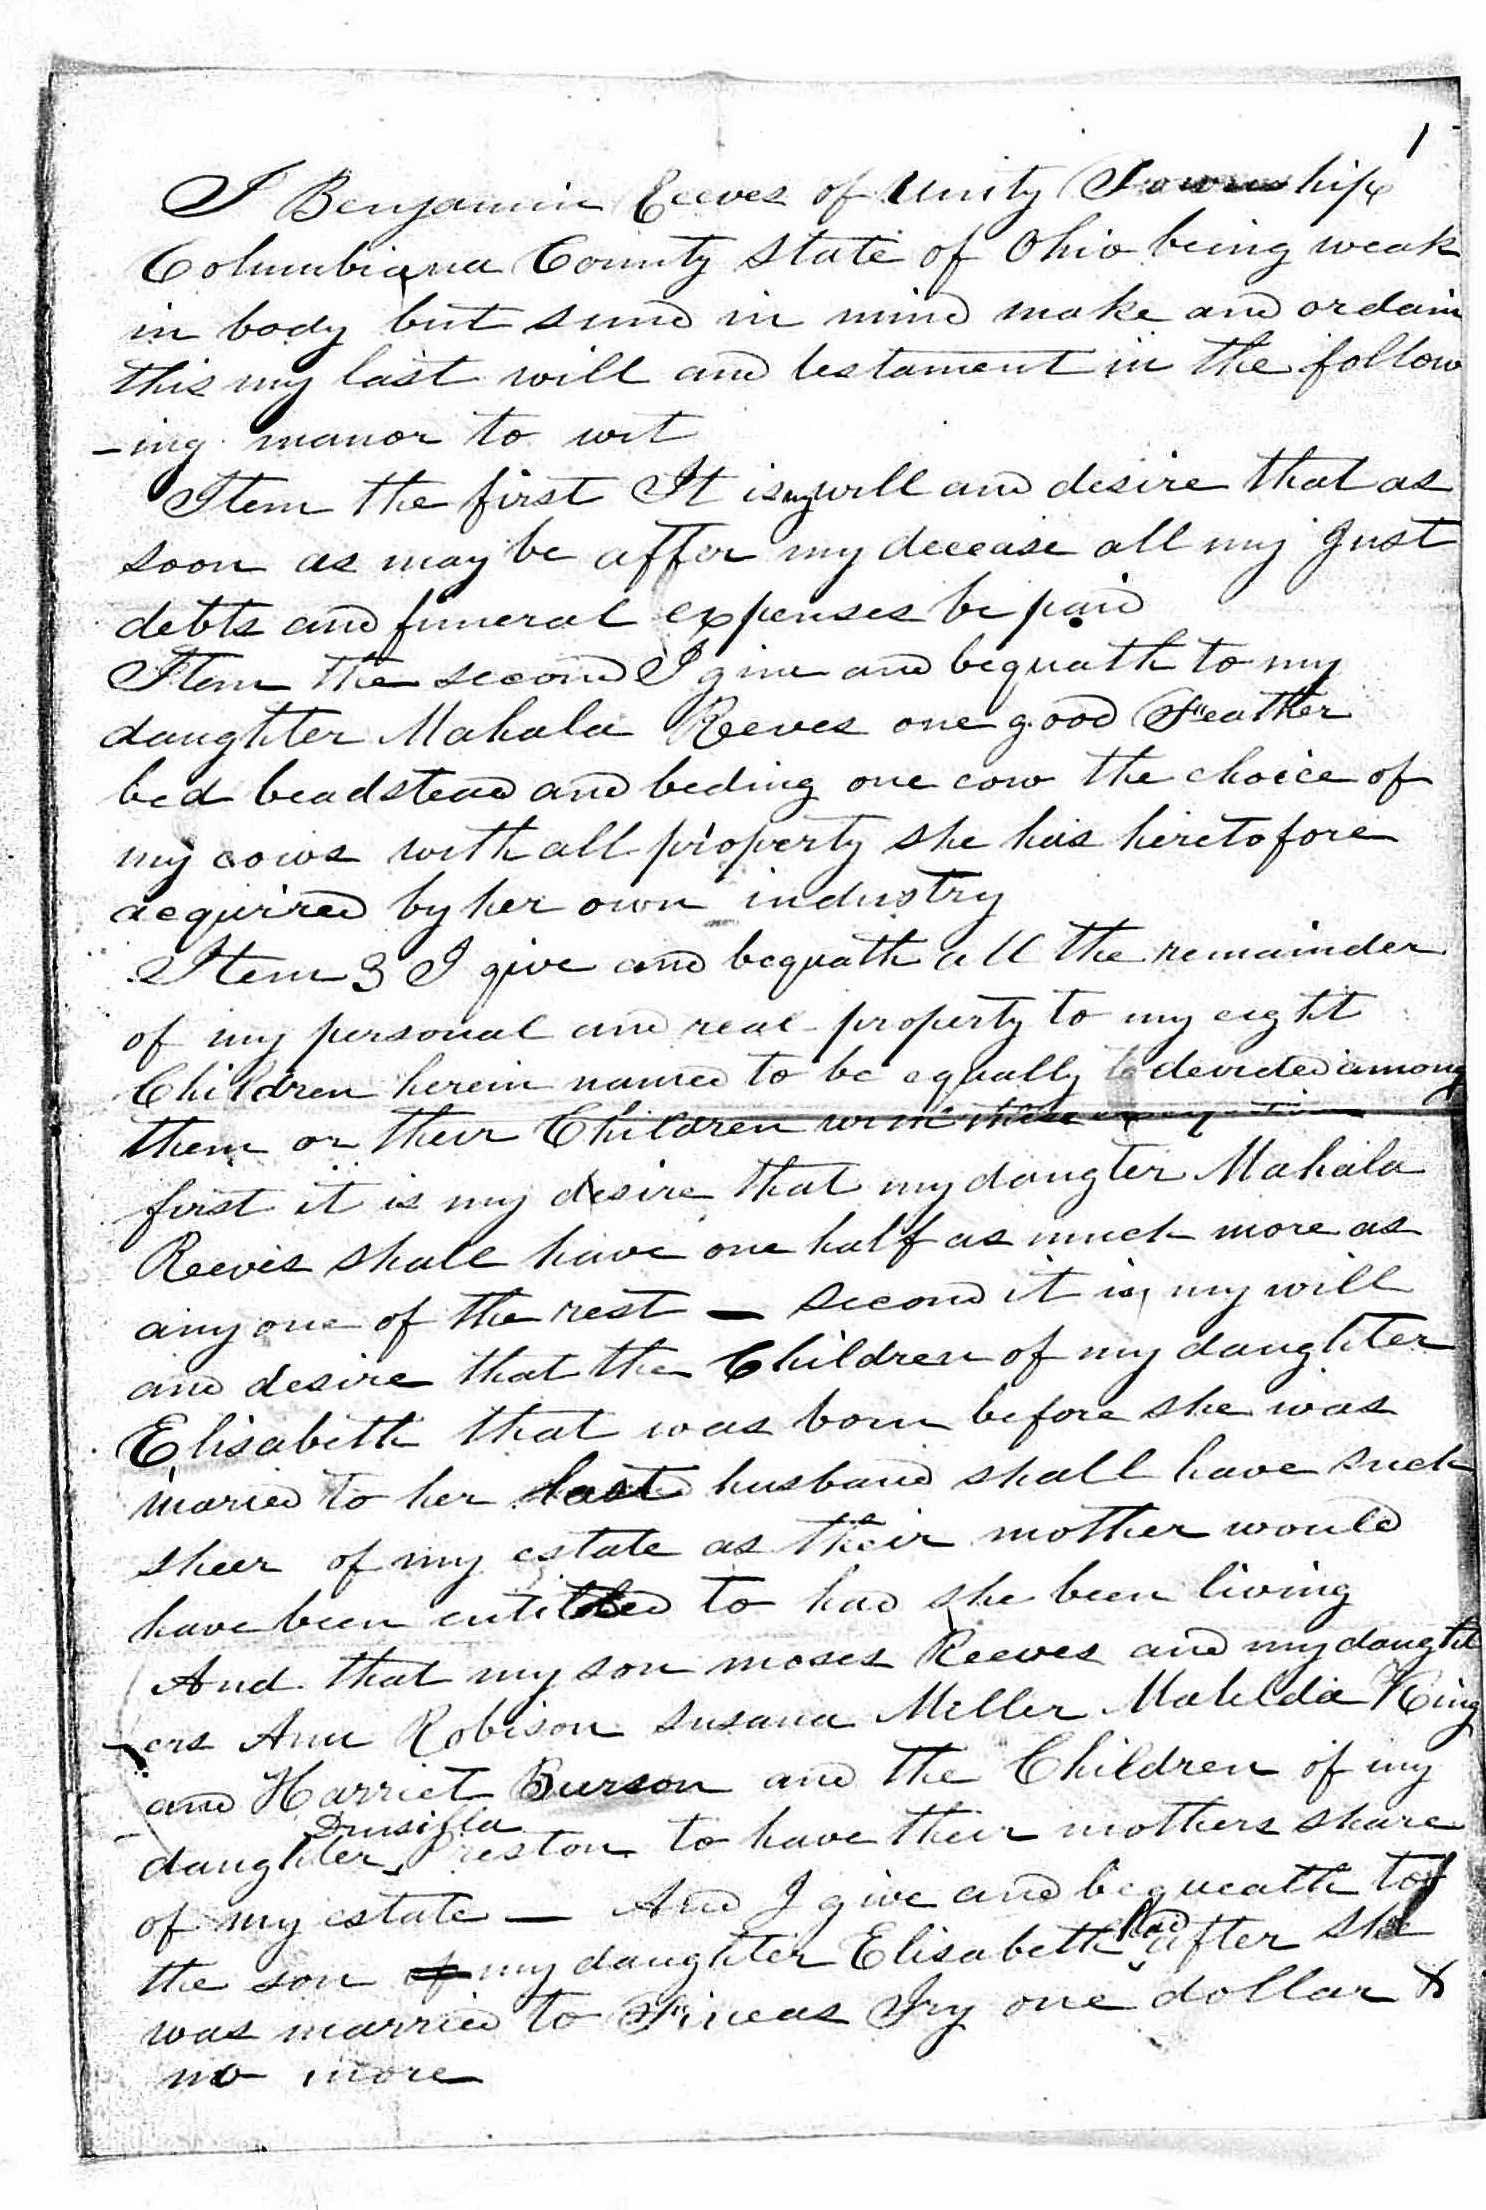 1
I Benjamin Reeves of Unity Township
Columbiana County State of Ohio being weak
in body but sund in mind make and ordain
this my last will and testament in the follow
-ing manor to wit
Item the first It is my will and desire that as
soon as may be after my decease all my Just
debts and funeral expenses be paid
Item the second I give and bequath to my
daughter Mahala Reeves one good Feather
bed beadstead and beding one cow the choice of
my cows with all property she has heretofore
acquired by her own industry
Item 3 I give and bequath all the remainder
of my personal and real property to my eight
Children herein named to be equally devided among
them or their Children with these
first it is my desire that my daugter Mahala
Reeves shall have one half as much more as
any one of the rest — second it is my will
and desire that the Children of my daughter
Elisabeth that was born before she was
maried to her last husband shall have such
sheer of my estate as their mother would
have been entitled to had she been living
And that my son moses Reeves and my daught
ers Ann Robison Susana Miller Matilda King
and Harriet Burson and the Children of my
daughter Drusilla Preston to have their mothers share
of my estate — And I give and bequeath to
the son of my daughter Elisabeth had after she
was married to Fineas Iry one dollar &
no more